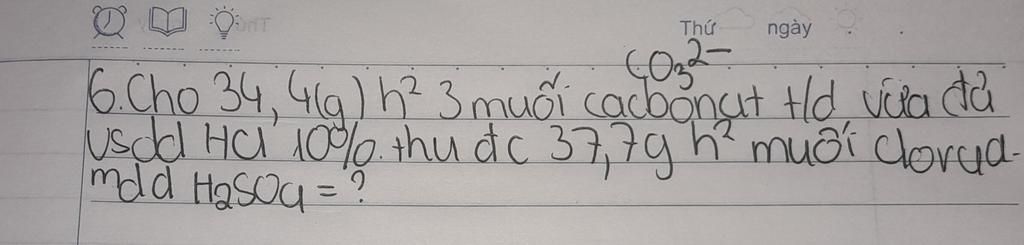 Thứ ngày
CO₃²⁻
6. Cho 34,4(g) h² 3 muối cacbonat t/d vừa đủ
vsdd HCl 10%. thu đc 37,7g h² muối clorua.
mdd H₂SO₄ = ?